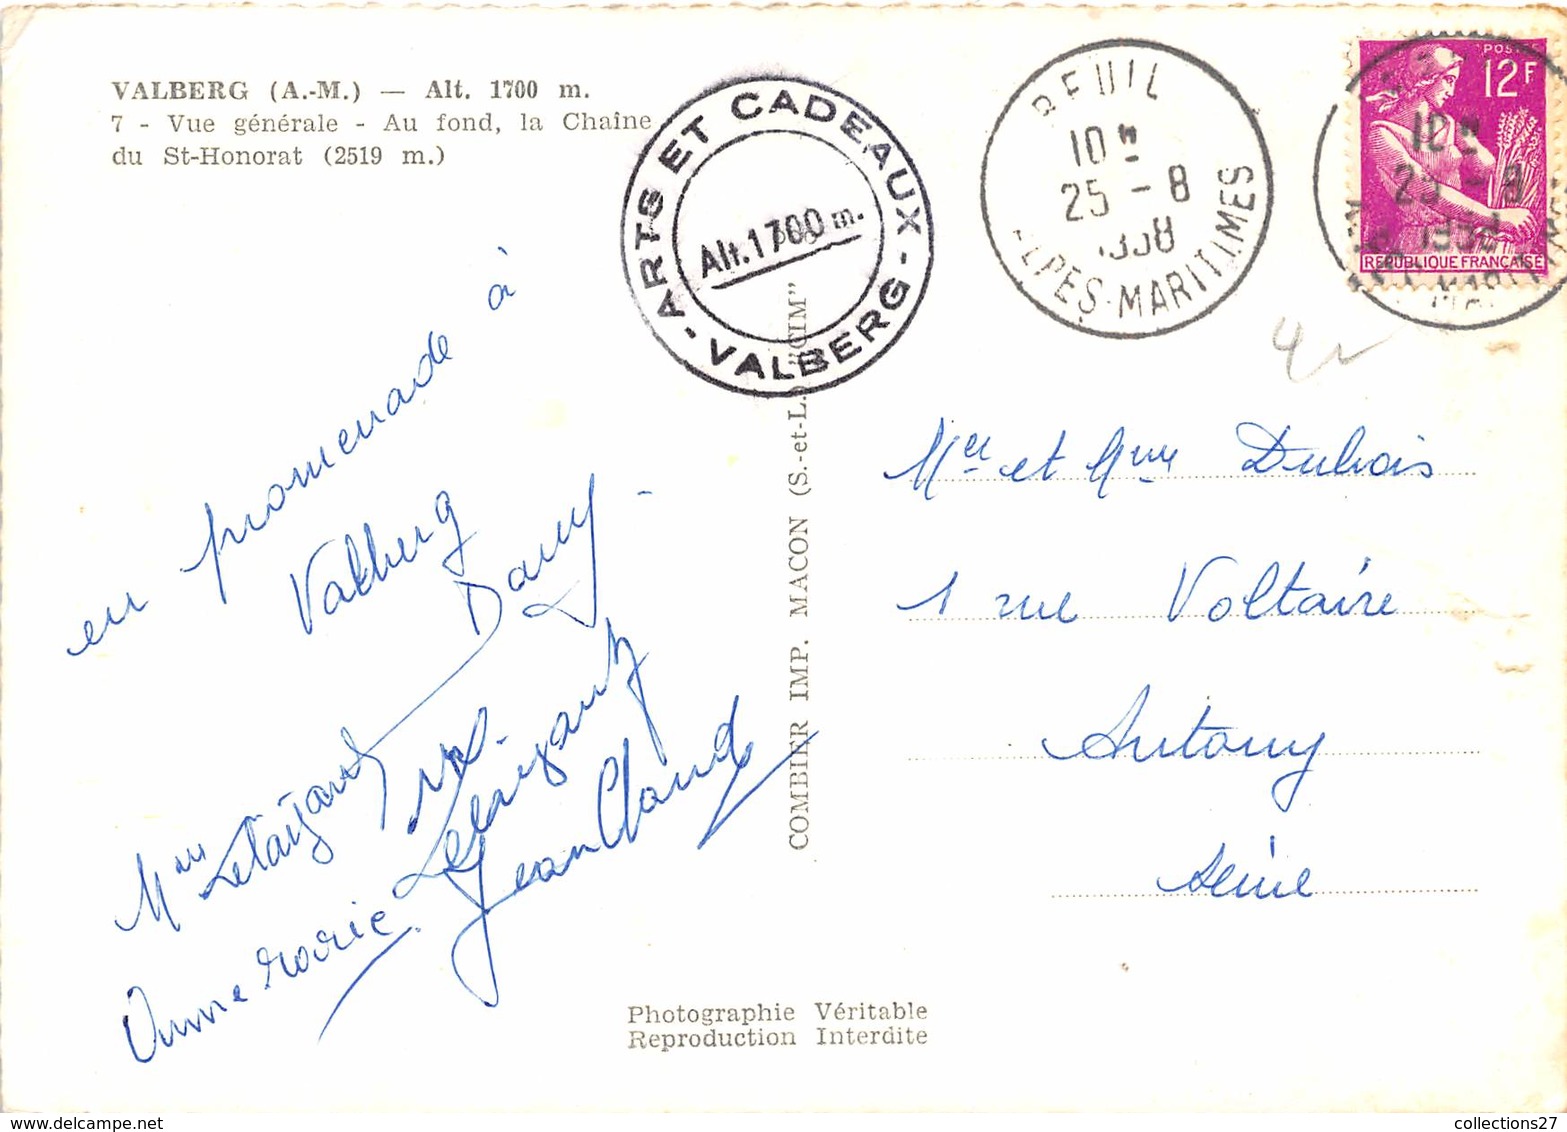 VALBERG (A.-M.) — Alt. 1700 m.
7 - Vue générale - Au fond, la Chaîne
du St-Honorat (2519 m.)
- ARTS ET CADEAUX - VALBERG
Alt. 1700 m.
BEUIL
10H
25 - 8
1958
ALPES-MARITIMES
POSTES
12F
REPUBLIQUE FRANÇAISE
10H
25 - 8
en promenade à
Valberg -
Dany
Mme
Jean Claude
Anne Marie
COMBIER IMP. MACON (S.-et-L.) "CIM"
Mr et Mme Dubois
1 rue Voltaire
Antony
Seine
Photographie Véritable
Reproduction Interdite
collections27